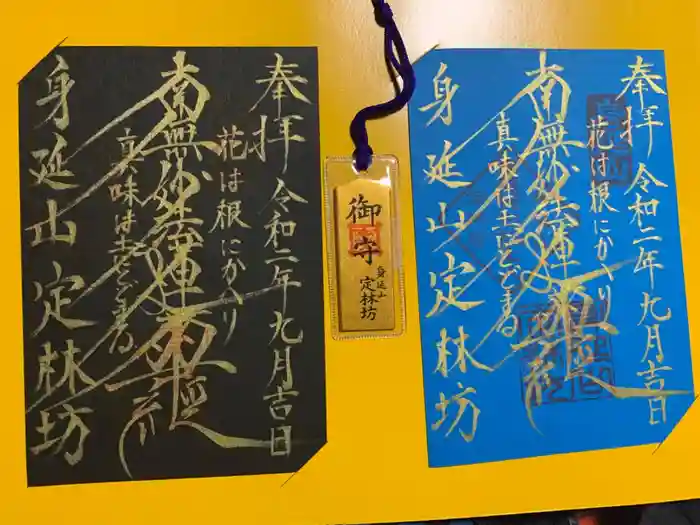 奉拝 令和二年九月吉日
花は根にかへり
南無妙法蓮華経
真味は土にとどまる
身延山定林坊
御守
身延山
定林坊
奉拝 令和二年九月吉日
花は根にかへり
南無妙法蓮華経
真味は土にとどまる
身延山定林坊